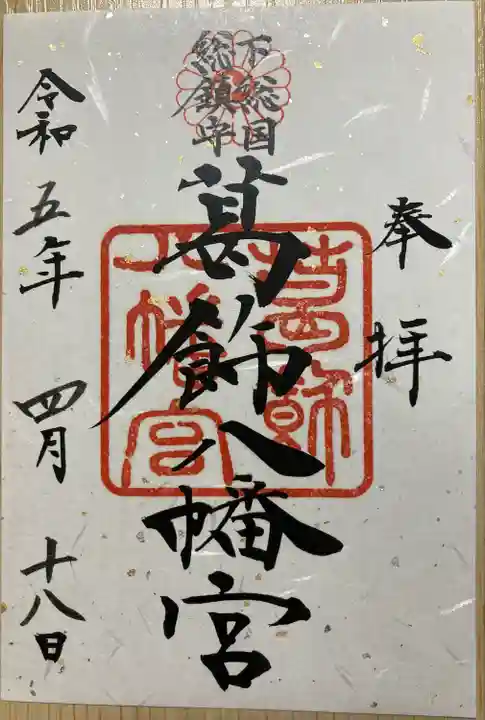 奉拝
下総国
総鎮守
葛飾八幡宮
葛飾
八幡宮
令和五年四月十八日